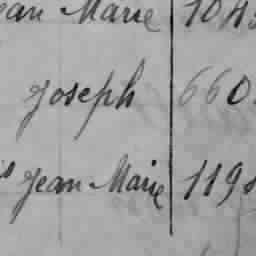 Jean Marie 104
Joseph 660
Jean Marie 119